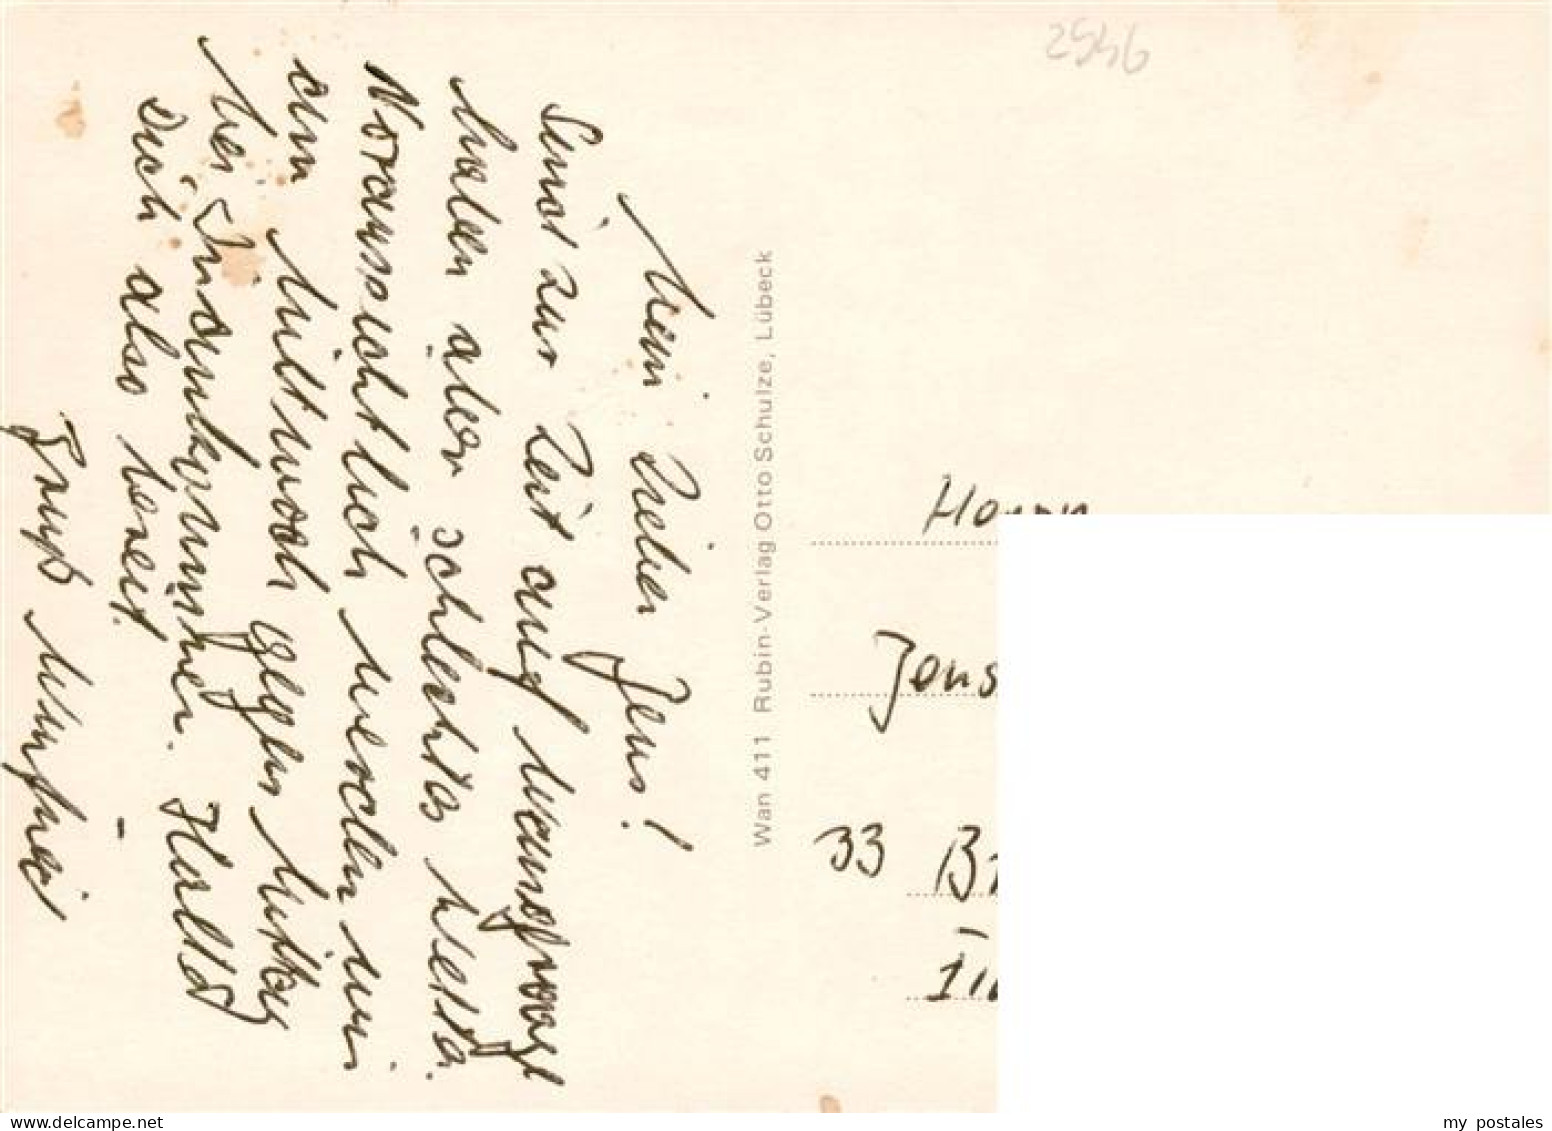 Mein lieber Jens!
Sind zur Zeit auf Wangeroog
haben aber schlechtes Wetter.
Voraussichtlich werden wir
am Mittwoch gegen Mittag
bei Dir ankommen. Haltet
Dich also bereit.
Gruß
Wan 411 Rubin-Verlag Otto Schulze, Lübeck
2546
Herrn
Jens
33 Br
my postales